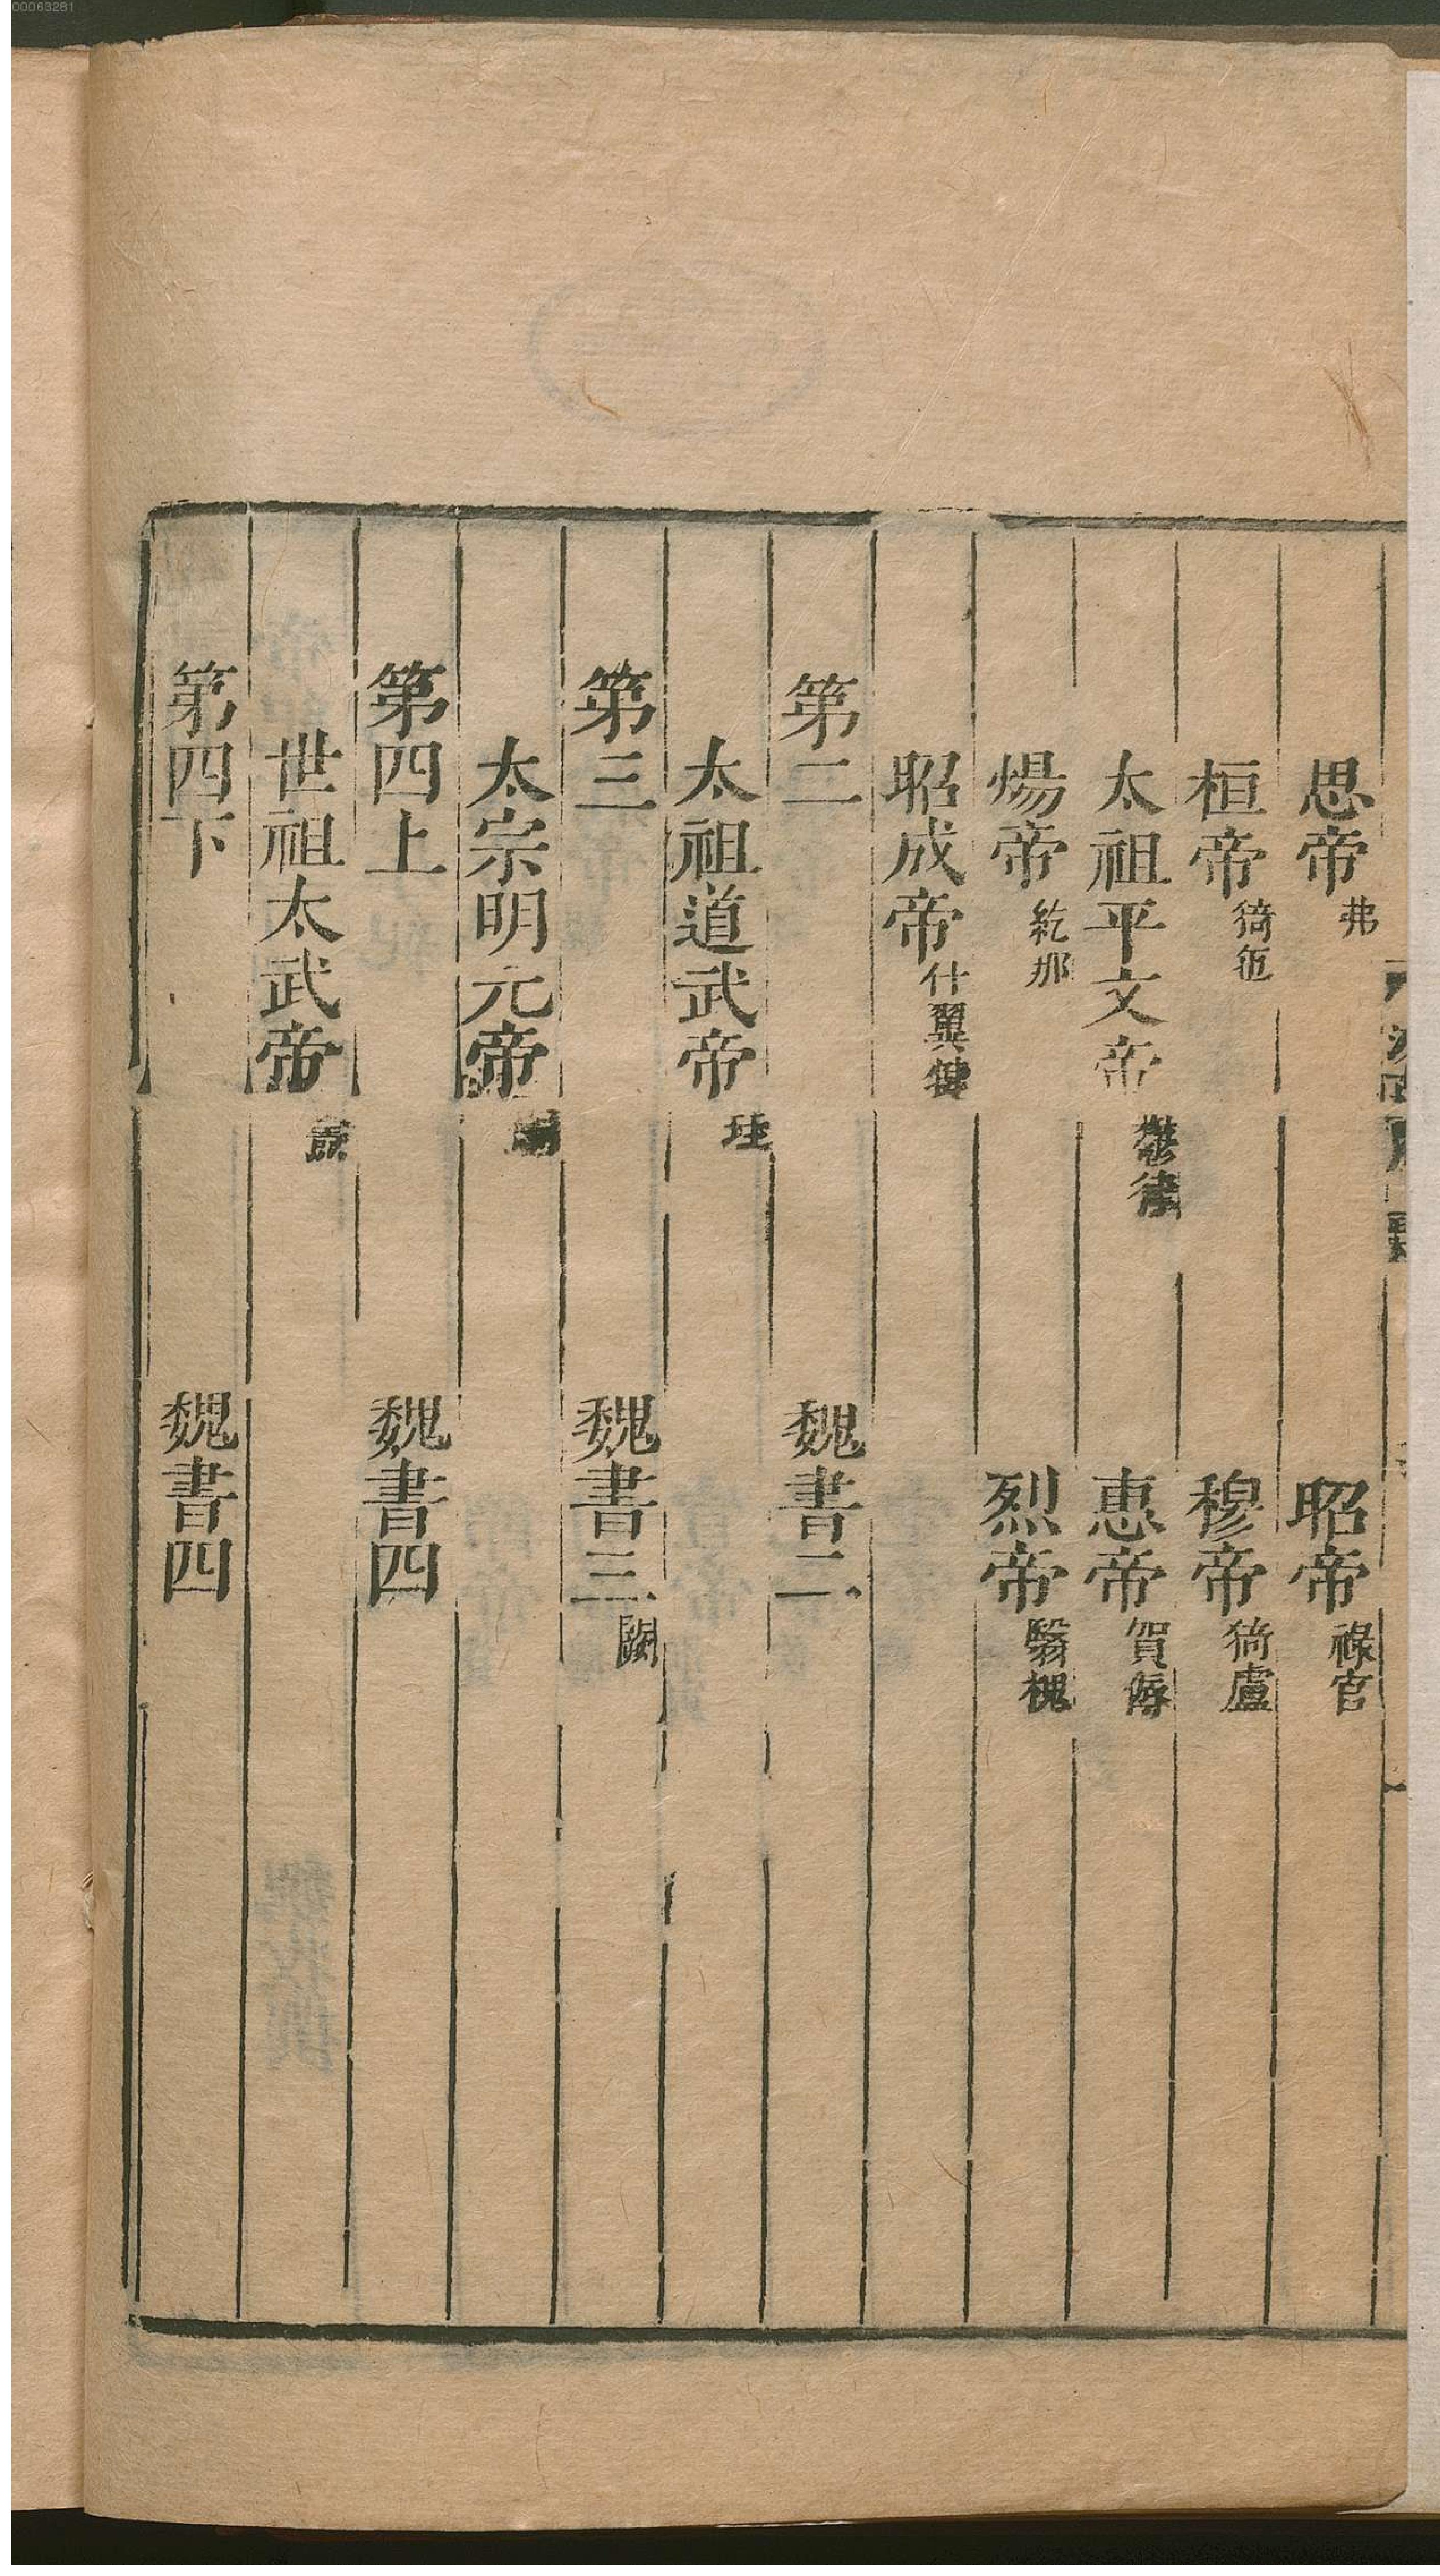 00063281
思帝弗 昭帝祿官
桓帝猗㐌 穆帝猗盧
太祖平文帝鬱律 惠帝賀傉
煬帝紇那 烈帝翳槐
昭成帝什翼犍
第二 魏書二
太祖道武帝珪
第三 魏書三闕
太宗明元帝
第四上 魏書四
世祖太武帝燾
第四下 魏書四